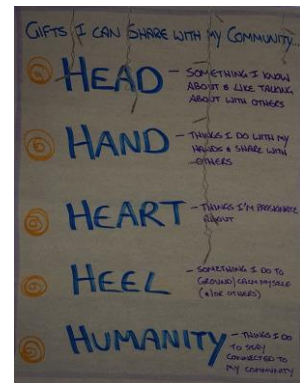 GIFTS I CAN SHARE WITH MY COMMUNITY...
HEAD - SOMETHING I KNOW
ABOUT & LIKE TALKING
ABOUT WITH OTHERS
HAND - THINGS I DO WITH MY
HANDS & SHARE WITH
OTHERS
HEART - THINGS I'M PASSIONATE
ABOUT
HEEL - SOMETHING I DO TO
GROUND/CALM MYSELF
(&/OR OTHERS)
HUMANITY - THINGS I DO
TO STAY
CONNECTED TO
MY COMMUNITY